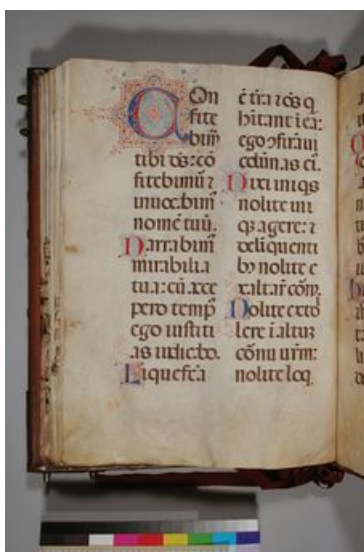 COn
fite
bim̃
tibi ds̄: cō
fitebimur̃ ⁊
inuocabim̃
nomē tuū.
Narrabim̃
mirabilia
tua: cū acce
pero temp̃
ego iustiti
as iudicabo.
Liquefca
ē trā ⁊ oēs q̄
hitant ī ea:
ego ɔfirmaui
colūnas eī.
Dixi iniqs
nolite ini
q̄ agere: ⁊
delīquenti
bꝫ nolite e
xaltar̄ cōrñ.
Nolite exto
lere ī altuꝫ
cōnu ur̄m:
nolite loq